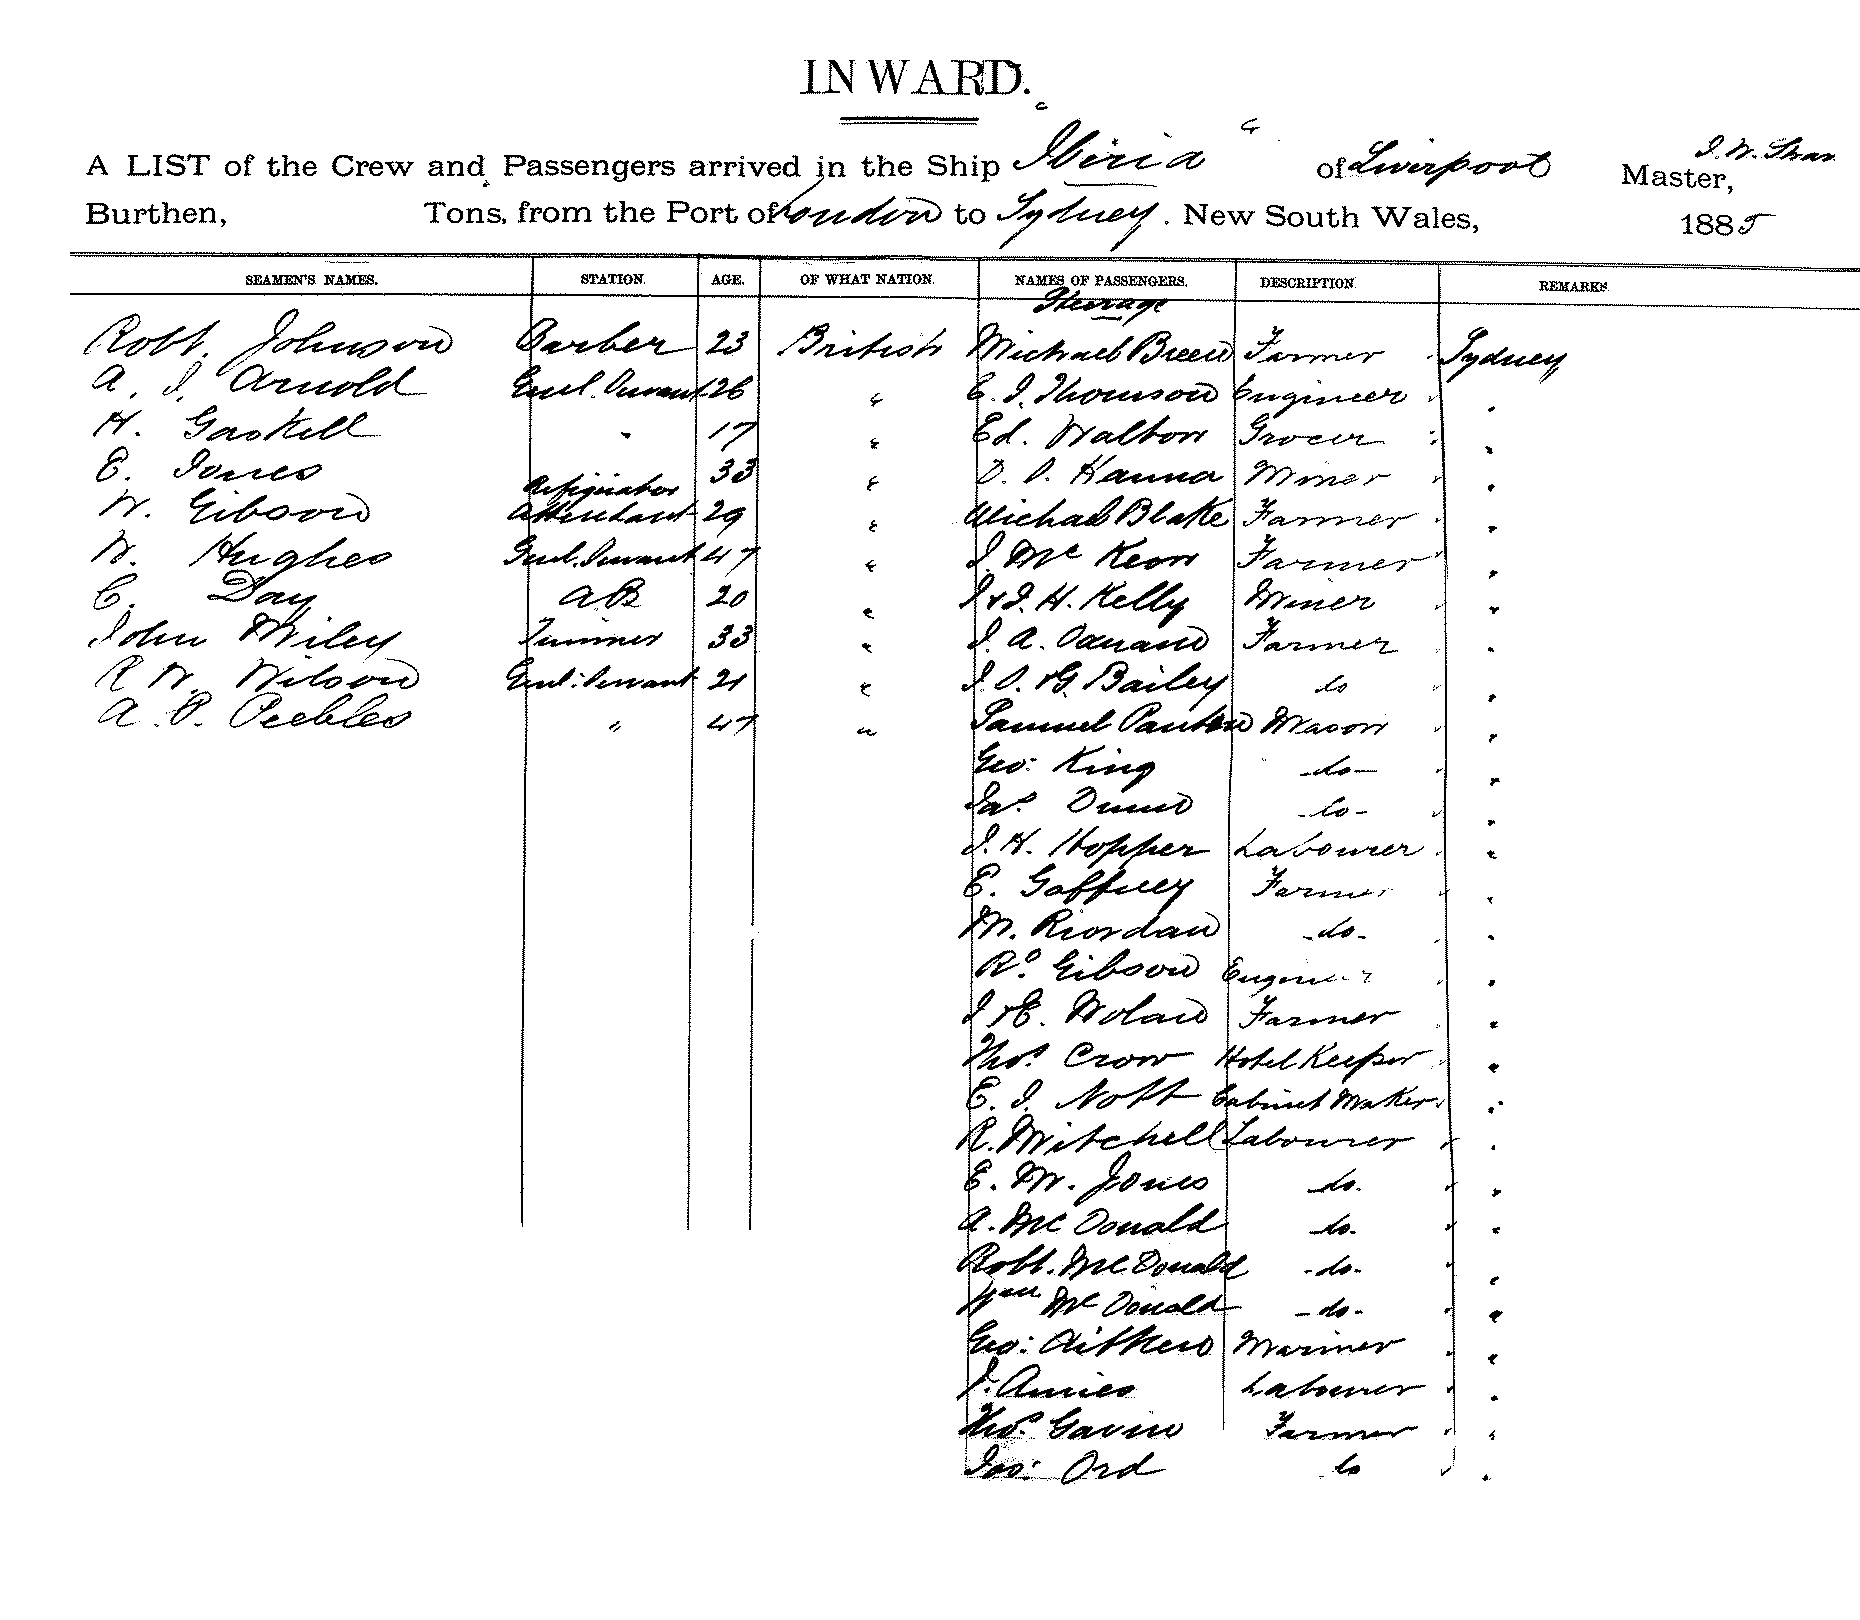 INWARD.
A LIST of the Crew and Passengers arrived in the Ship "Iberia" of Liverpool J. W. Shan Master,
Burthen, Tons, from the Port of London to Sydney. New South Wales, 1885
SEAMEN'S NAMES. STATION. AGE. OF WHAT NATION. NAMES OF PASSENGERS. DESCRIPTION REMARKS
Steerage
Robt. Johnson Barber 23 British Michael Breen Farmer Sydney
A. J. Arnold Genl. Servant 26 " E. J. Thomson Engineer " "
H. Gaskell " 17 " Ed. Walton Grocer " "
E. Jones 33 " D. O. Hanna Miner " "
Refrigerator
W. Gibson Attendant 29 " Michael Blake Farmer " "
W. Hughes Genl. Servant 47 " J. Mc Keon Farmer " "
C. Day AB 20 " J & J. H. Kelly Miner " "
John Wiley Trimmer 33 " J. A. Farmer " "
R W. Wilson Genl: Servant 21 " J. O. & G. Bailey do " "
A. P. Peebles " 47 " Samuel Panton Mason " "
Geo: King -do- " "
Jas. Dunn -do- " "
J. H. Hopper Labourer " "
E. Gaffney Farmer " "
M. Riordan -do- " "
Rd. Gibson Engineer " "
J & E. Nolan Farmer " "
Thos. Crow Hotel Keeper " "
E. J. Nott Cabinet Maker " "
R. Mitchell Labourer " "
E. M. Jones -do. " "
A. Mc Donald -do. " "
Robt. McDonald -do- " "
Wm Mc Donald -do- " "
Geo: Aitken Mariner " "
J. Annies Labourer " "
Thos. Gavin Farmer " "
Jas: Ord do " "